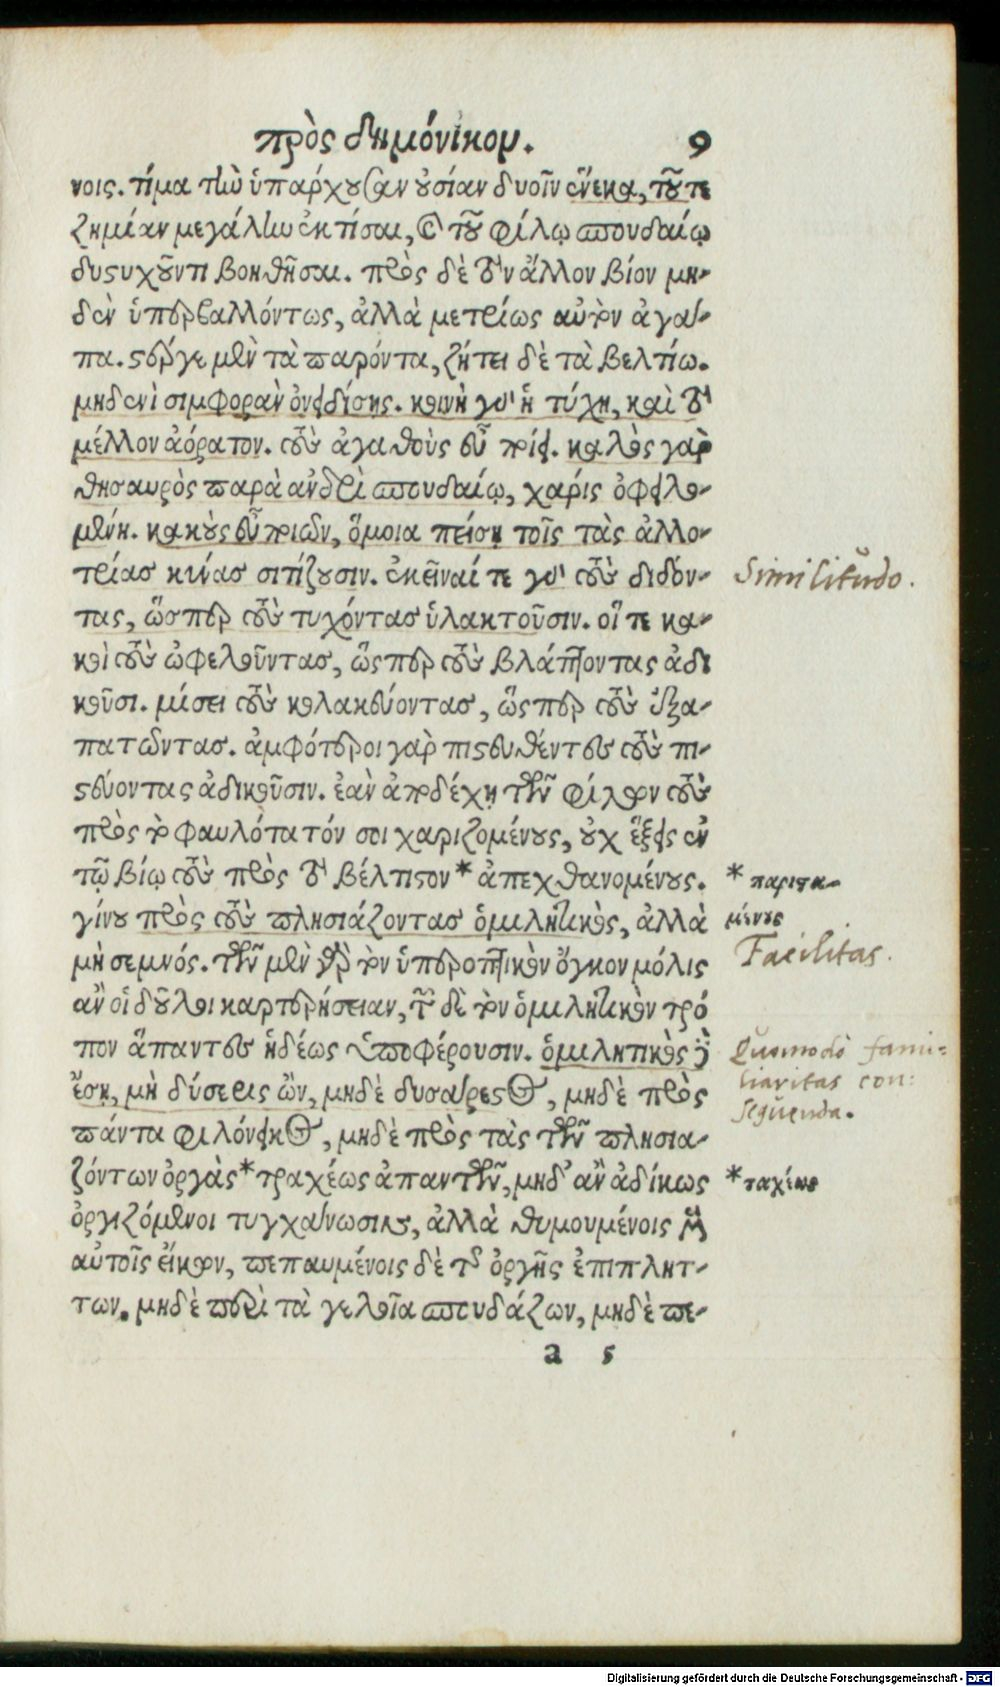 πρὸς δημόνικον. 9
νοις. τίμα τὴν ὑπάρχουσαν οὐσίαν δυοῖν ἕνεκα, τοῦ τε
ζημίαν μεγάλην ἐκτίσαι, καὶ τοῦ φίλῳ σπουδαίῳ
δυστυχοῦντι βοηθῆσαι. πρὸς δὲ τὸν ἄλλον βίον μη-
δὲν ὑπερβαλλόντως, ἀλλὰ μετρίως αὐτὸν ἀγα-
πα. στέργε μὲν τὰ παρόντα, ζήτει δὲ τὰ βελτίω.
μηδενὶ συμφορὰν ὀνειδίσῃς. κοινὴ γὰρ ἡ τύχη, καὶ τὸ
μέλλον ἀόρατον. τοὺς ἀγαθοὺς εὖ ποίει. καλὸς γὰρ
θησαυρὸς παρὰ ἀνδρὶ σπουδαίῳ, χάρις ὀφειλο-
μένη. κακοὺς εὖ ποιῶν, ὅμοια πείσῃ τοῖς τὰς ἀλλο-
τρίας κύνας σιτίζουσιν. ἐκεῖναί τε γὰρ τοὺς διδόν-
τας, ὥσπερ τοὺς τυχόντας ὑλακτοῦσιν. οἵ τε κα-
κοὶ τοὺς ὠφελοῦντας, ὥσπερ τοὺς βλάπτοντας ἀδι
κοῦσι. μίσει τοὺς κολακεύοντας, ὥσπερ τοὺς ἐξα-
πατῶντας. ἀμφότεροι γὰρ πιστευθέντες τοὺς πι-
στεύοντας ἀδικοῦσιν. ἐὰν ἀποδέχῃ τῶν φίλων τοὺς
πρὸς τὸ φαυλότατόν σοι χαριζομένους, οὐχ ἕξεις ἐν
τῷ βίῳ τοὺς πρὸς τὸ βέλτιστον * ἀπεχθανομένους.
* παριστα-
μένους
γίνου πρὸς τοὺς πλησιάζοντας ὁμιλητικὸς, ἀλλὰ
μὴ σεμνός. τῶν μὲν γὰρ τὸν ὑπεροπτικὸν ὄγκον μόλις
ἂν οἱ δοῦλοι καρτερήσειαν, τῶν δὲ τὸν ὁμιλητικὸν τρό
πον ἅπαντες ἡδέως ὑποφέρουσιν. ὁμιλητικὸς δὲ
ἔσῃ, μὴ δύσερις ὢν, μηδὲ δυσάρεστος, μηδὲ πρὸς
πάντα φιλόνεικος, μηδὲ πρὸς τὰς τῶν πλησια-
ζόντων ὀργὰς * τραχέως ἀπαντῶν, μηδ' ἂν ἀδίκως
* ταχέως
ὀργιζόμενοι τυγχάνωσιν, ἀλλὰ θυμουμένοις μὲν
αὐτοῖς εἴκων, πεπαυμένοις δὲ τῆς ὀργῆς ἐπιπλήτ-
των. μηδὲ περὶ τὰ γελοῖα σπουδάζων, μηδὲ πε-
a 5
Similitudo.
Facilitas.
Quomodo fami-
liaritas con:
sequenda.
Digitalisierung gefördert durch die Deutsche Forschungsgemeinschaft - DFG